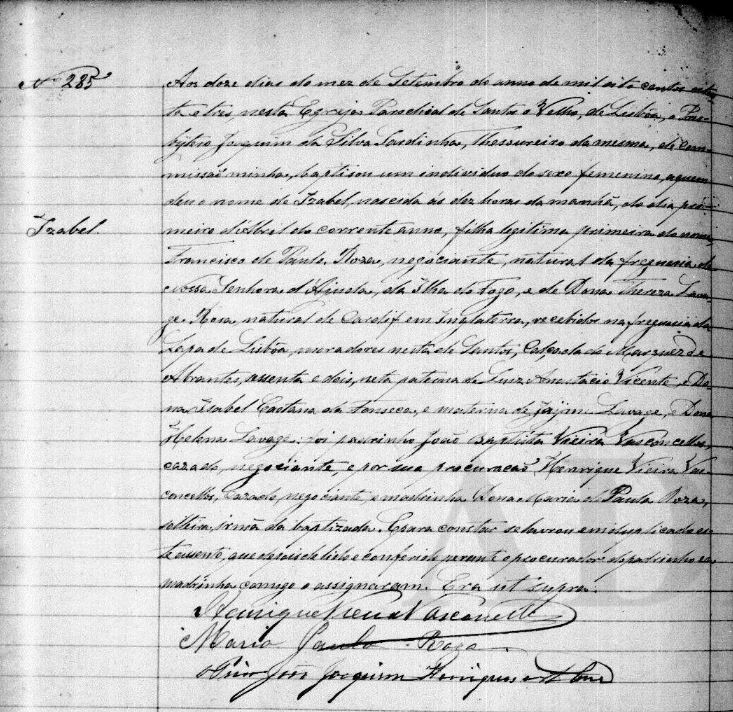 Nº 285
Izabel.
Aos doze dias do mez de Setembro do anno de mil oito centos oiten
ta e tres, nesta Egreja Parochial de Santos o Velho, de Lisboa, o Pres
bytero Joaquim da Silva Sardinha, Thesoureiro da mesma, de com
missaõ minha, baptisou um individuo do sexo femenino, a quem
deu o nome de Izabel, nascida ás dez horas da manhã, do dia pri
meiro d'Abril do corrente anno, filha legitima primeira do nome
Francisco de Paula Roza, negociante, natural da freguesia de
Nossa Senhora d'Ajuda, da Ilha do Fogo, e de Dona Thereza Sava
ge Roza, natural de Cardif em Inglaterra, recebidos na freguesia da
Lapa de Lisboa, moradores nesta de Santos, Calçada do Marquez de
Abrantes, e dois, neta paterna de Luiz Anastacio Vicente, e Do
na Isabel Caetana da Fonseca, e materna de Savage, e Dona
Helena Savage: foi padrinho João Baptista Vieira Vasconcellos,
cazado, negociante, e por sua procuração Henrique Vieira Vas
concellos, cazado, negociante, e madrinha Dona Maria de Paula Roza,
solteira, irmã da baptizada. E para constar se lavrou em duplicado es
te assento, que depois de lido e conferido perante o procurador do padrinho e a
madrinha comigo o assignaram. Era ut supra.
Henrique Vieira Vasconcellos
Maria Paula Roza
João Joaquim Henriques